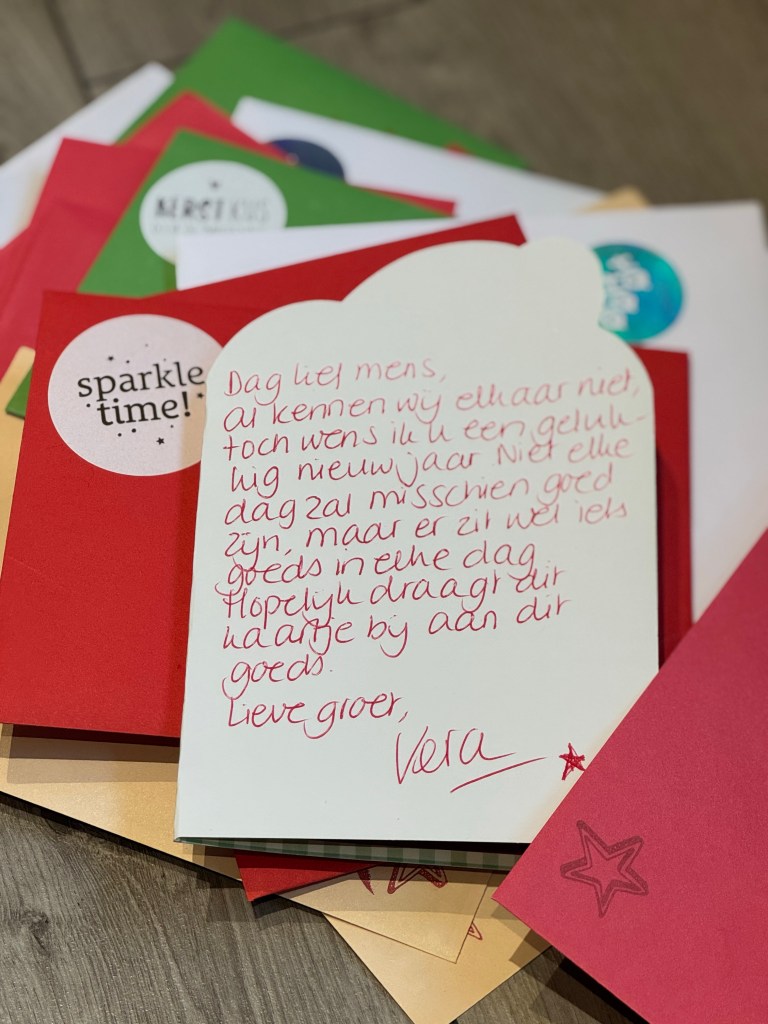 KERST KUS
sparkle
time!
Dag lief mens,
al kennen wij elkaar niet,
toch wens ik u een geluk-
kig nieuwjaar. Niet elke
dag zal misschien goed
zijn, maar er zit wel iets
goeds in elke dag.
Hopelijk draagt dit
kaartje bij aan dit
goeds.
Lieve groet,
Vera